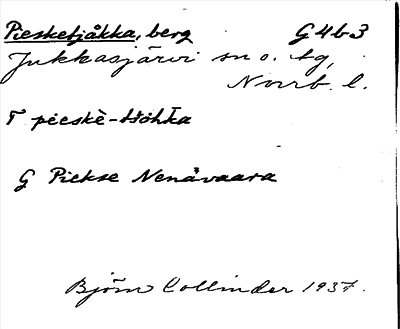 Piesketjåkka, berg G4b3
Jukkasjärvi sn o. tg,
Norrb. l.
T
G Piekse Nenävaara
Björn Collinder 1937.